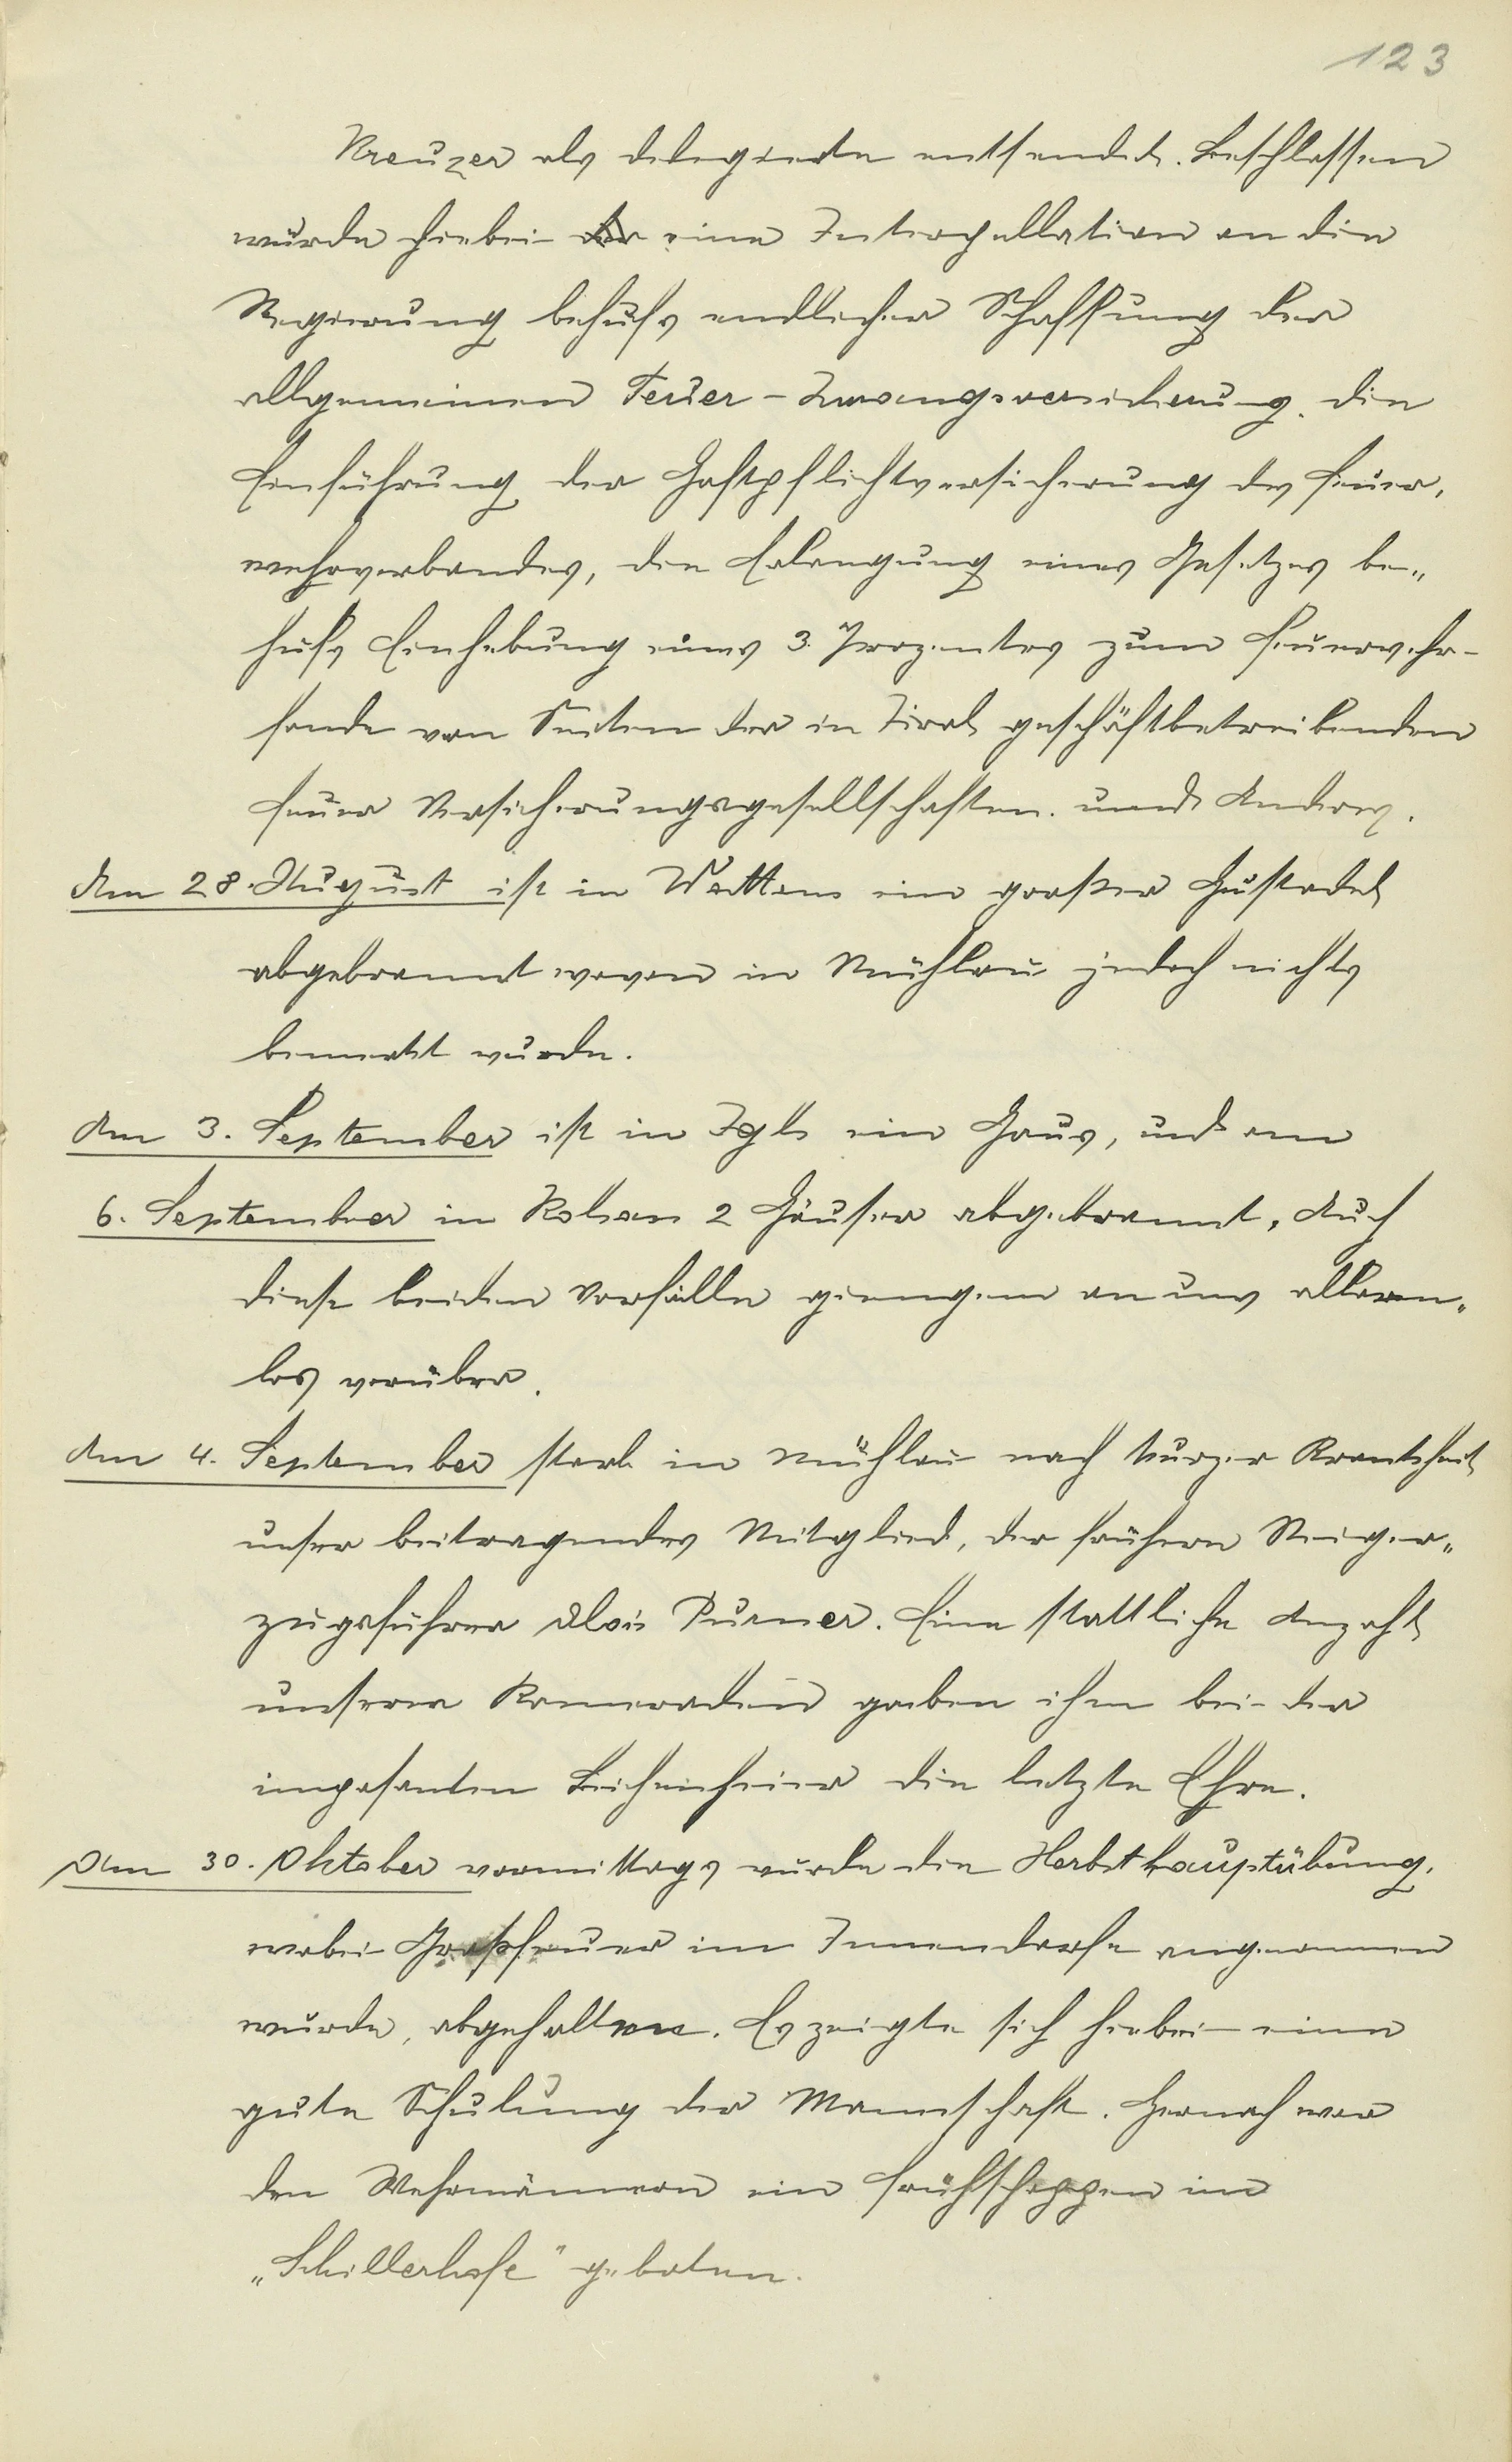 123
Kreuzer als Delegierte entsendet. Beschlossen
wurde hiebei eine Interpellation an die
Regierung behufs endlicher Schaffung der
allgemeinen Feuer-Zwangsversicherung, die
Einführung der Haftpflichtversicherung des Feuer,
wehrverbandes, die Erlangung eines Gesetzes be„
hufs Einhebung eines 3. Prozentes zum Feuerwehr-
fonde von Seiten der in Tirol geschäftbetreibenden
Feuer Versicherungsgesellschaften. und Anderes.
Am 28. August ist in Wattens ein großer Hustadel
abgebrannt wovon in Mühlau jedoch nichts
bemerkt wurde.
Am 3. September ist in Igls ein Haus, und am
6. September in 2 Häuser abgebrannt, Auch
diese beiden Vorfälle giengen an uns allarm„
los vorüber.
Am 4. September starb in Mühlau nach kurzer Krankheit
unser beitragendes Mitglied, der frühere Steiger„
zugsführer Alois Purner. Eine stattliche Anzahl
unserer Kameraden gaben ihm bei der
imposanten Leichenfeier die letzte Ehre.
Am 30. Oktober vormittags wurde die Herbsthauptübung,
wobei Großfeuer im Innendorfe angenommen
wurde, abgehalten. Es zeigte sich hiebei eine
gute Schulung der Mannschaft. Hernach war
den Wehrmännern ein Frühschoppen im
„Schillerhofe" geboten.